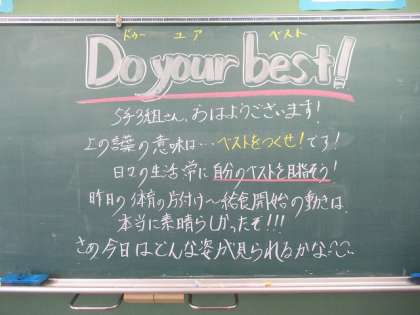 ドゥー ユア ベスト
Do your best!
5年3組さん、おはようございます!
上の言葉の意味は…ベストをつくせ!です!
日々の生活常に自分のベストを目指そう!
昨日の体育の片付け〜給食開始の動きは、
本当に素晴らしかったぞ!!!
さぁ今日はどんな姿が見られるかな